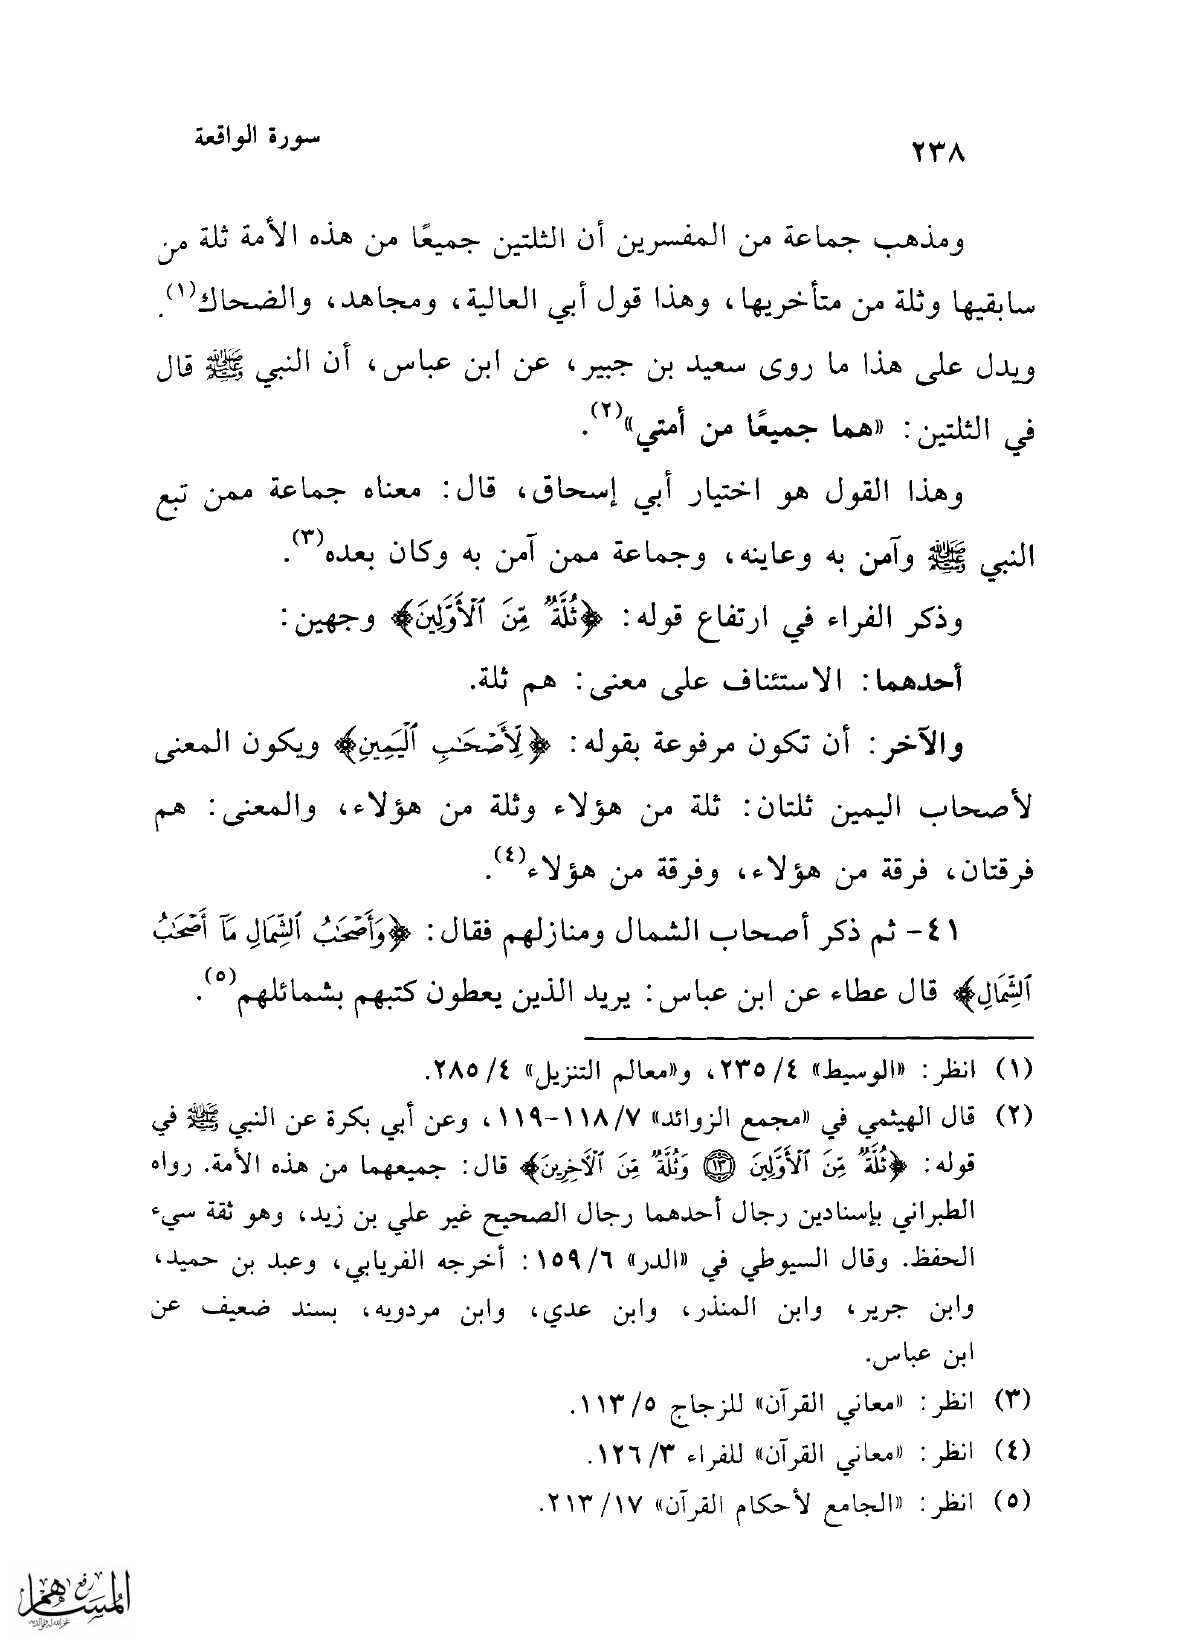 ٢٣٨
سورة الواقعة
ومذهب جماعة من المفسرين أن الثلتين جميعًا من هذه الأمة ثلة من
سابقيها وثلة من متأخريها، وهذا قول أبي العالية، ومجاهد، والضحاك(١).
ويدل على هذا ما روى سعيد بن جبير، عن ابن عباس، أن النبي ﷺ قال
في الثلتين: «هما جميعًا من أمتي»(٢).
وهذا القول هو اختيار أبي إسحاق، قال: معناه جماعة ممن تبع
النبي ﷺ وآمن به وعاينه، وجماعة ممن آمن به وكان بعده(٣).
وذكر الفراء في ارتفاع قوله: ﴿ثُلَّةٌ مِّنَ ٱلْأَوَّلِينَ﴾ وجهين:
أحدهما: الاستئناف على معنى: هم ثلة.
والآخر: أن تكون مرفوعة بقوله: ﴿لِّأَصْحَٰبِ ٱلْيَمِينِ﴾ ويكون المعنى
لأصحاب اليمين ثلتان: ثلة من هؤلاء وثلة من هؤلاء، والمعنى: هم
فرقتان، فرقة من هؤلاء، وفرقة من هؤلاء(٤).
٤١- ثم ذكر أصحاب الشمال ومنازلهم فقال: ﴿وَأَصْحَٰبُ ٱلشِّمَالِ مَآ أَصْحَٰبُ
ٱلشِّمَالِ﴾ قال عطاء عن ابن عباس: يريد الذين يعطون كتبهم بشمائلهم(٥).
(١) انظر: «الوسيط» ٤/ ٢٣٥، و«معالم التنزيل» ٤/ ٢٨٥.
(٢) قال الهيثمي في «مجمع الزوائد» ٧/ ١١٨-١١٩، وعن أبي بكرة عن النبي ﷺ في
قوله: ﴿ثُلَّةٌ مِّنَ ٱلْأَوَّلِينَ ۝١٣ وَثُلَّةٌ مِّنَ ٱلْآخِرِينَ﴾ قال: جميعهما من هذه الأمة. رواه
الطبراني بإسنادين رجال أحدهما رجال الصحيح غير علي بن زيد، وهو ثقة سيء
الحفظ. وقال السيوطي في «الدر» ٦/ ١٥٩: أخرجه الفريابي، وعبد بن حميد،
وابن جرير، وابن المنذر، وابن عدي، وابن مردويه، بسند ضعيف عن
ابن عباس.
(٣) انظر: «معاني القرآن» للزجاج ٥/ ١١٣.
(٤) انظر: «معاني القرآن» للفراء ٣/ ١٢٦.
(٥) انظر: «الجامع لأحكام القرآن» ١٧/ ٢١٣.
رفع
المساهم